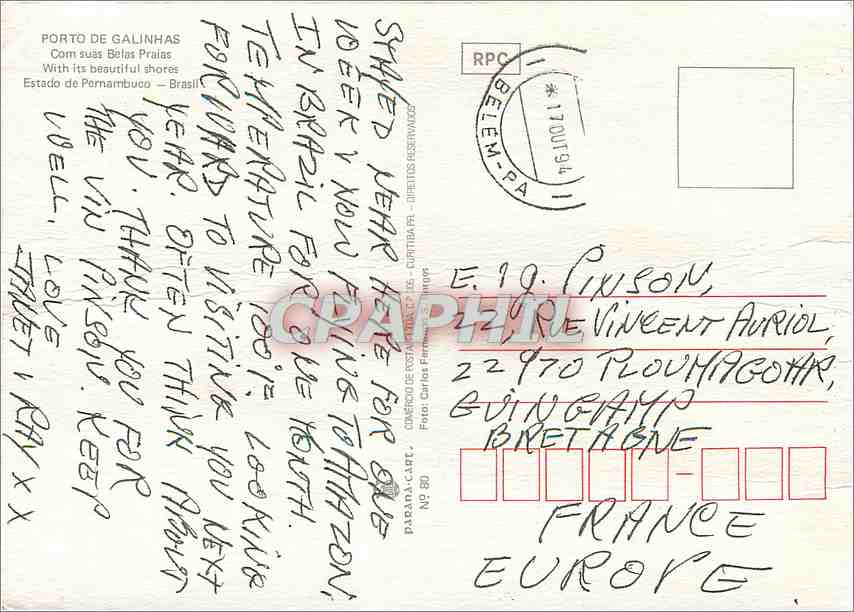 PORTO DE GALINHAS
Com suas Belas Praias
With its beautiful shores
Estado de Pernambuco – Brasil
STAYED NEAR HERE FOR ONE
WEEK & NOW FLYING TO AMAZON.
IN BRAZIL FOR ONE MONTH.
TEMPERATURE 100°F. LOOKING
FORWARD TO VISITING YOU NEXT
YEAR. OFTEN THINK ABOUT
YOU. THANK YOU FOR
THE VIN PINSON. KEEP
WELL. LOVE
JANET & RAY X X
PARANÁ-CART.
COMÉRCIO DE POSTAIS LTDA. C.P. 106 – CURITIBA PR. – DIREITOS RESERVADOS
Nº 80
Foto: Carlos Borges
RPC
BELEM-PA
*17 OUT 94
E. PINSON,
22, RUE VINCENT AURIOL,
22970 PLOUMAGOAR,
GUINGAMP
BRETAGNE
FRANCE
EUROPE
CPAPHIL